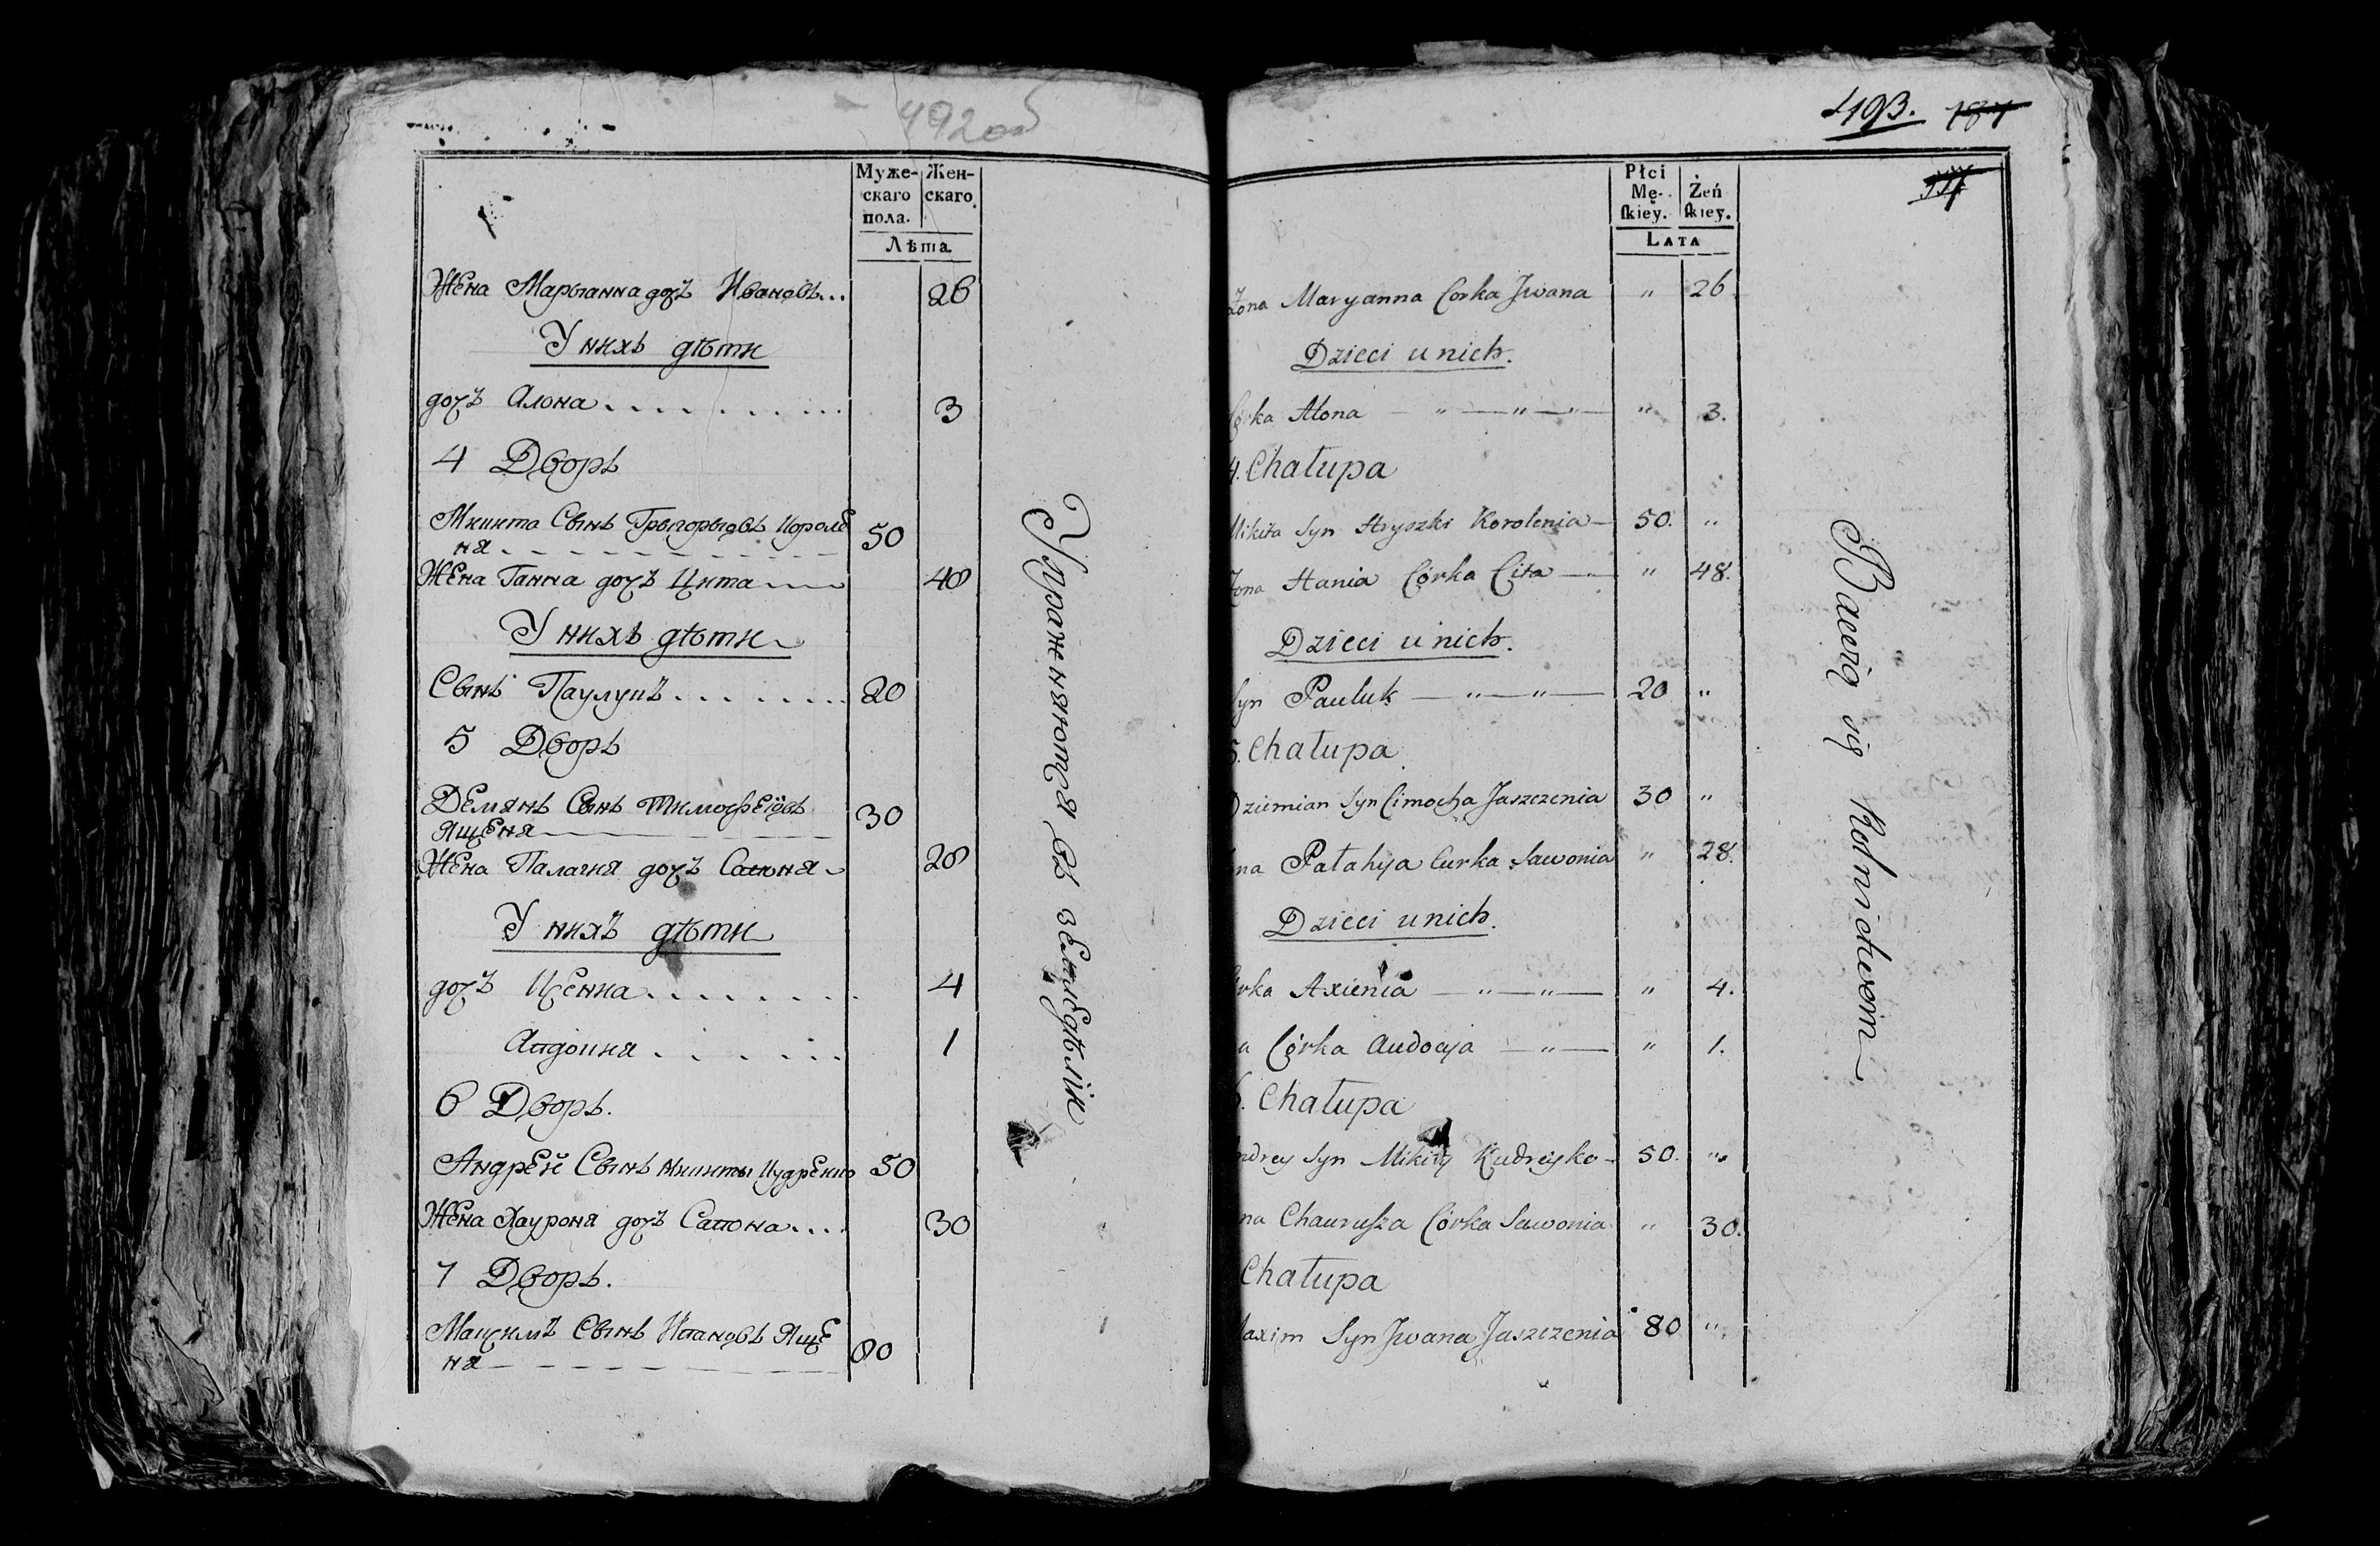 492об
Муже-
скаго
пола.
Жен-
скаго.
Лѣта.
Жена Марыанна дочъ Ивановъ...
26
У нихъ дѣти
дочъ Алона
3
4 Дворъ
Микита Сынъ Грыгорыовъ Короле
ня
50
Жена Ганна дочъ Цита
48
У нихъ дѣти
Сынъ Паулукъ
20
5 Дворъ
Демянъ Сынъ Тимофеiовъ
Ященя
30
Жена Палагия дочъ Савоня
28
У нихъ дѣти
дочъ
4
1
6 Дворъ.
Андрей Сынъ Микиты Кудрейко
50
Жена Хауроня дочъ Савона...
30
7 Дворъ.
Макцимъ Сынъ Ивановъ Яще
ня
80
Упражняются въ земледѣлiи
493. 187
Płci
Mę-
skiey.
Żeń
skiey.
Lata
Żona Maryanna Corka Jwana " 26
Dzieci u nich.
Córka Alona " 3.
4. Chałupa
Mikita Syn Hryszki Korolenia 50. "
Żona Hania Córka Cita " 48.
Dzieci u nich.
Syn Pauluk 20 "
5. Chałupa
Dziemian Syn Cimocha Jaszczenia 30 "
na Pałahya Curka Sawonia " 28.
Dzieci u nich.
rka Axienia " 4.
a Córka Audocya " 1.
6. Chałupa
ndrey Syn Mikity Kudreyko 50. "
na Chaurusza Córka Sawonia " 30.
Chałupa
axim Syn Jwana Jaszczenia 80 "
Bawią się Rolnictwem